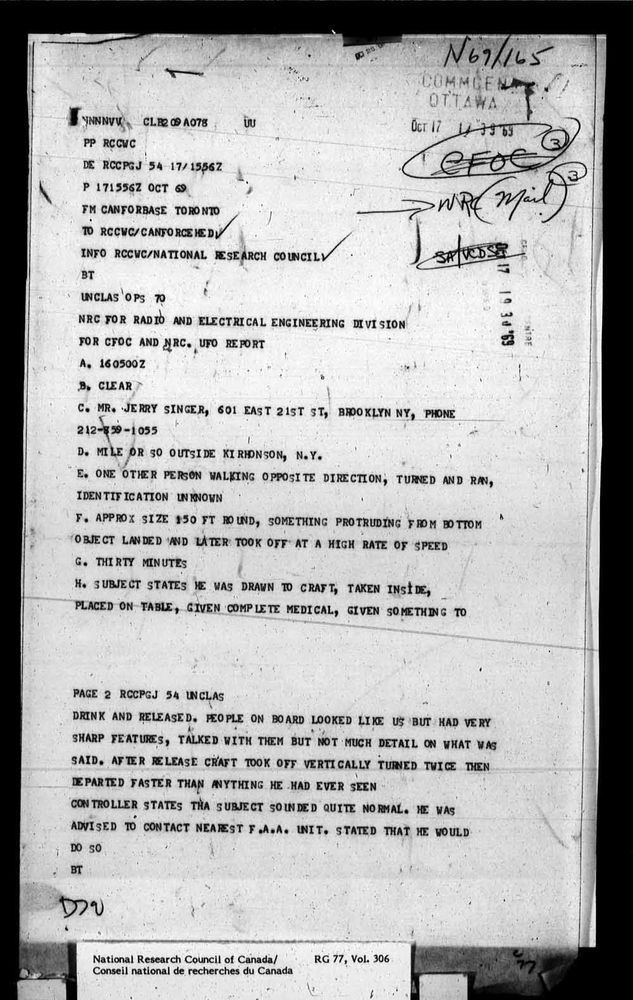 N69/165
COMMCEN
OTTAWA
OCT 17
CLB209A078 UU
3
PP RCCWC
CFOC
DE RCCPGJ 54 17/1556Z
3
P 171556Z OCT 69
NRC (Mail)
FM CANFORBASE TORONTO
TO RCCWC/CANFORCEHED
INFO RCCWC/NATIONAL RESEARCH COUNCIL
SA/VCDS
BT
UNCLAS OPS 70
NRC FOR RADIO AND ELECTRICAL ENGINEERING DIVISION
FOR CFOC AND NRC. UFO REPORT
A. 160500Z
B. CLEAR
C. MR. JERRY SINGER, 601 EAST 21ST ST, BROOKLYN NY, PHONE
212-859-1055
D. MILE OR SO OUTSIDE KIRHONSON, N.Y.
E. ONE OTHER PERSON WALKING OPPOSITE DIRECTION, TURNED AND RAN,
IDENTIFICATION UNKNOWN
F. APPROX SIZE 150 FT ROUND, SOMETHING PROTRUDING FROM BOTTOM
OBJECT LANDED AND LATER TOOK OFF AT A HIGH RATE OF SPEED
G. THIRTY MINUTES
H. SUBJECT STATES HE WAS DRAWN TO CRAFT, TAKEN INSIDE,
PLACED ON TABLE, GIVEN COMPLETE MEDICAL, GIVEN SOMETHING TO
PAGE 2 RCCPGJ 54 UNCLAS
DRINK AND RELEASED. PEOPLE ON BOARD LOOKED LIKE US BUT HAD VERY
SHARP FEATURES, TALKED WITH THEM BUT NOT MUCH DETAIL ON WHAT WAS
SAID. AFTER RELEASE CRAFT TOOK OFF VERTICALLY TURNED TWICE THEN
DEPARTED FASTER THAN ANYTHING HE HAD EVER SEEN
CONTROLLER STATES THA SUBJECT SOUNDED QUITE NORMAL. HE WAS
ADVISED TO CONTACT NEAREST F.A.A. UNIT. STATED THAT HE WOULD
DO SO
BT
National Research Council of Canada/ RG 77, Vol. 306
Conseil national de recherches du Canada